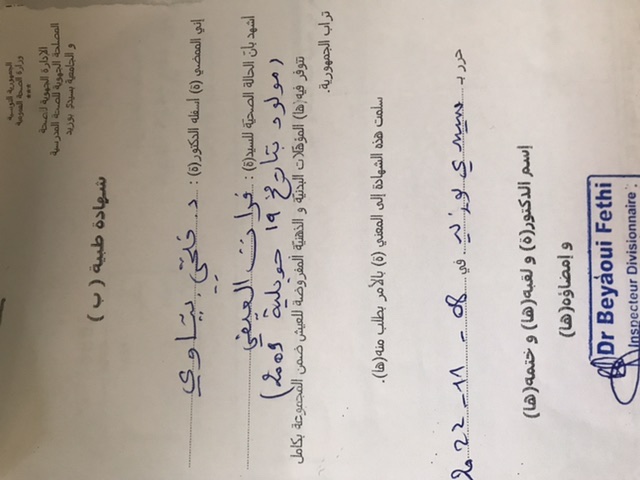 الجمهورية التونسية
وزارة الصحة العمومية
***
الإدارة الجهوية للصحة
المصلحة الجهوية للصحة المدرسية
و الجامعية بسيدي بوزيد
شهادة طبية ( ب )
إني الممضي (ة) أسفله الدكتور(ة) : د. فتحي بيّاوي
أشهد بأن الحالة الصحية للسيد(ة) : فرات العيفي
(مولود بتاريخ 19 جويلية 2009)
تتوفر فيه(ها) المؤهلات البدنية و الذهنية المفروضة للعيش ضمن المجموعة بكامل
تراب الجمهورية.
سلمت هذه الشهادة إلى المعني (ة) بالأمر بطلب منه(ها).
حرر بـ سيدي بوزيد في 08 - 11 - 2022
إسم الدكتور(ة) و لقبه(ها) و ختمه(ها)
و إمضاؤه(ها)
Dr Beyaoui Fethi
Inspecteur Divisionnaire